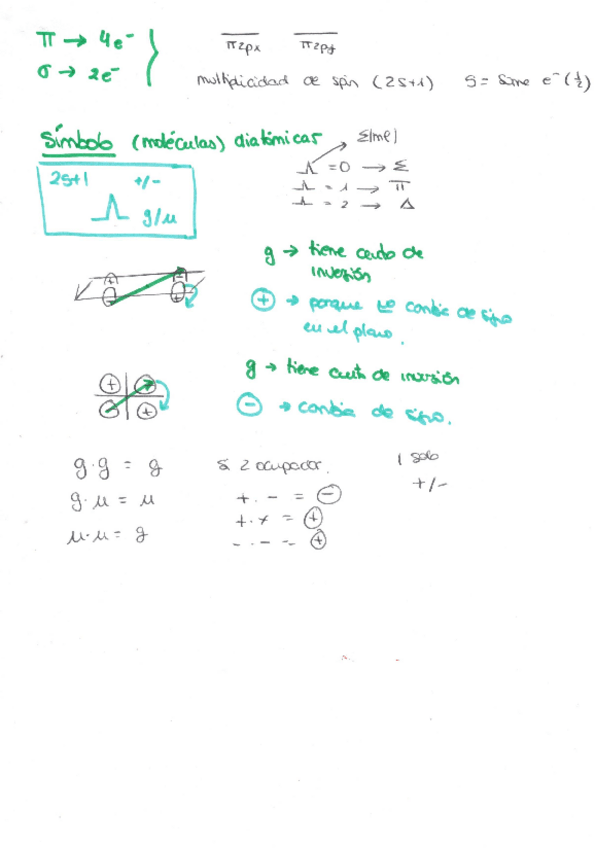 π → 4e⁻
σ → 2e⁻
π2px π2py
multiplicidad de spin (2s+1) S = suma e⁻ (½)
Símbolo (moléculas) diatómicas
Σ|me|
2s+1 +/-
Λ g/u
Λ = 0 → Σ
Λ = 1 → Π
Λ = 2 → Δ
g → tiene centro de
inversión
+ → porque no cambia de signo
en el plano.
g → tiene centro de inversión
- → cambia de signo.
+ +
- +
g·g = g
g·u = u
u·u = g
Si 2 ocupados.
+ · - = -
+ · + = +
- · - = +
1 solo
+/-